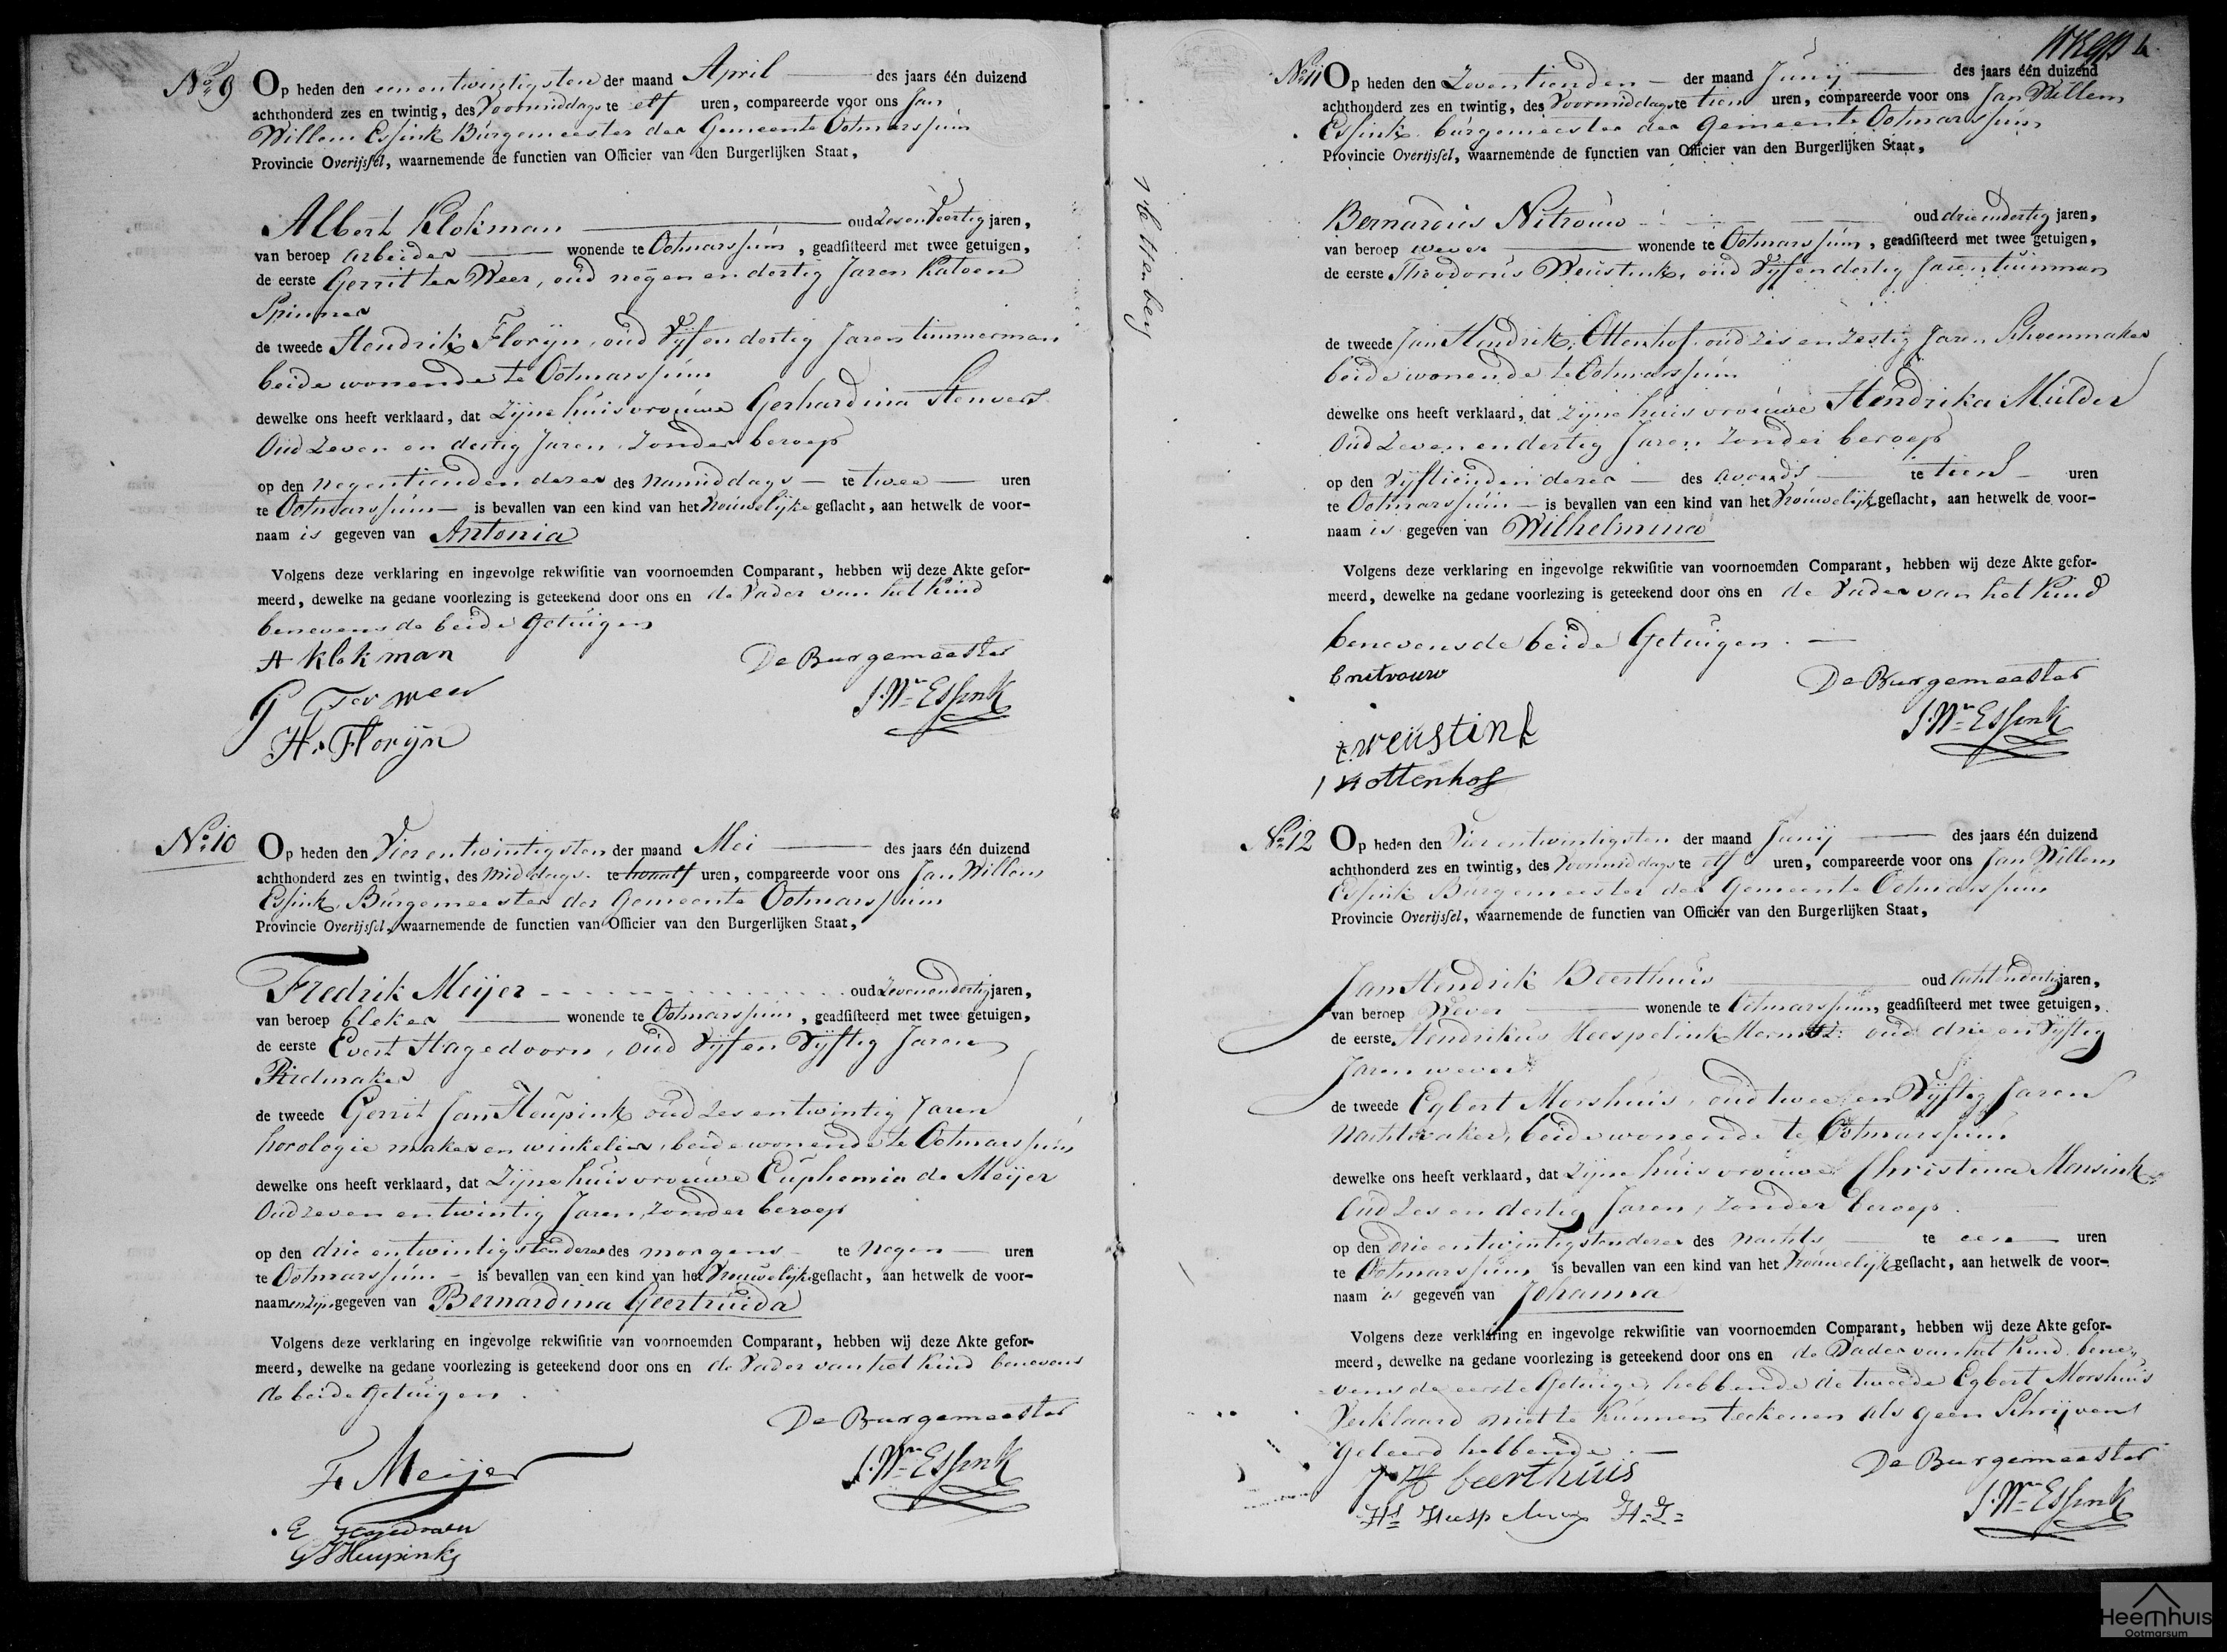 No. 9 Op heden den eenentwintigsten der maand April des jaars één duizend
achthonderd zes en twintig, des Voormiddags te elf uren, compareerde voor ons Jan
Willem Essink Burgemeester der Gemeente Ootmarssum
Provincie Overijssel, waarnemende de functien van Officier van den Burgerlijken Staat,
Albert Klokman oud Zesenveertig jaren,
van beroep arbeider wonende te Ootmarssum, geadsisteerd met twee getuigen,
de eerste Gerrit ter Weer, oud negen en dertig Jaren Katoen
Spinner
de tweede Hendrik Floryn, oud Vyf en dertig Jaren timmerman
beide wonende te Ootmarssum
dewelke ons heeft verklaard, dat zijne huisvrouwe Gerhardina Stenvers
Oud Zeven en dertig Jaren, Zonder beroep
op den negentienden dezer des namiddags te twee uren
te Ootmarssum is bevallen van een kind van het Vrouwelijke geslacht, aan hetwelk de voor-
naam is gegeven van Antonia
Volgens deze verklaring en ingevolge rekwisitie van voornoemden Comparant, hebben wij deze Akte gefor-
meerd, dewelke na gedane voorlezing is geteekend door ons en de Vader van het Kind
benevens de beide Getuigen
A Klokman De Burgemeester
G Ter Weer J. Wm Essink
H. Florijn
No. 10 Op heden den Vier entwintigsten der maand Mei des jaars één duizend
achthonderd zes en twintig, des Middags te uren, compareerde voor ons Jan Willem
Essink, Burgemeester der Gemeente Ootmarssum
Provincie Overijssel, waarnemende de functien van Officier van den Burgerlijken Staat,
Fredrik Meijer oud Zevenendertig jaren,
van beroep bleker wonende te Ootmarssum, geadsisteerd met twee getuigen,
de eerste Evert Hagedoorn, oud Vyf en Vyftig Jaren
de tweede Gerrit Jan Heupink oud zes entwintig Jaren
horologie maker en winkelier, beide wonende te Ootmarssum
dewelke ons heeft verklaard, dat Zijne huisvrouwe Euphemia de Meijer
Oud zeven en twintig Jaren, zonder beroep
op den drie entwintigsten dezer des morgens te negen uren
te Ootmarssum is bevallen van een kind van het Vrouwelijk geslacht, aan hetwelk de voor-
naamen zijn gegeven van Bernardina Geertruida
Volgens deze verklaring en ingevolge rekwisitie van voornoemden Comparant, hebben wij deze Akte gefor-
meerd, dewelke na gedane voorlezing is geteekend door ons en de Vader van het Kind benevens
de beide Getuigen.
De Burgemeester
F. Meijer J. Wm Essink
E Hagedoorn
G J Heupink
No. 11 Op heden den Zeventienden der maand Junij des jaars één duizend
achthonderd zes en twintig, des Voormiddags te tien uren, compareerde voor ons Jan Willem
Essink burgemeester der Gemeente Ootmarssum
Provincie Overijssel, waarnemende de functien van Officier van den Burgerlijken Staat,
Bernardus Nitrouw oud drie endertig jaren,
van beroep wever wonende te Ootmarssum, geadsisteerd met twee getuigen,
de eerste Theodorus Weustink, oud Vyf en dertig Jaren tuinman
de tweede Jan Hendrik Ottenhof oud zes en zestig Jaren Schoenmaker
beide wonende te Ootmarssum
dewelke ons heeft verklaard, dat zijne huisvrouwe Hendrika Mulder
Oud Zeven en dertig Jaren zonder beroep
op den Vyftienden dezer des avonds te tien uren
te Ootmarssum is bevallen van een kind van het Vrouwelijk geslacht, aan hetwelk de voor-
naam is gegeven van Wilhelmina
Volgens deze verklaring en ingevolge rekwisitie van voornoemden Comparant, hebben wij deze Akte gefor-
meerd, dewelke na gedane voorlezing is geteekend door ons en de Vader van het Kind
benevens de beide Getuigen.
b nitrouw De Burgemeester
t. weustink J. Wm Essink
J H ottenhof
No. 12 Op heden den Vier entwintigsten der maand Junij des jaars één duizend
achthonderd zes en twintig, des Voormiddags te elf uren, compareerde voor ons Jan Willem
Essink Burgemeester der Gemeente Ootmarssum
Provincie Overijssel, waarnemende de functien van Officier van den Burgerlijken Staat,
Jan Hendrik Beerthuis oud Achtendertig jaren,
van beroep Wever wonende te Ootmarssum, geadsisteerd met twee getuigen,
de eerste Hendrikus Heespelink oud drie en Vyftig
Jaren wever
de tweede Egbert Morshuis, oud twee en Vyftig Jaren
Nachtwaker, beide wonende te Ootmarssum
dewelke ons heeft verklaard, dat zijne huisvrouwe Christina Monsink
Oud zes en dertig Jaren, zonder beroep.
op den drie entwintigsten dezer des Nachts te een uren
te Ootmarssum is bevallen van een kind van het Vrouwelijk geslacht, aan hetwelk de voor-
naam is gegeven van Johanna
Volgens deze verklaring en ingevolge rekwisitie van voornoemden Comparant, hebben wij deze Akte gefor-
meerd, dewelke na gedane voorlezing is geteekend door ons en de Vader van het Kind bene-
vens de eerste Getuige, hebbende de tweede Egbert Morshuis
Verklaard niet te kunnen teekenen als geen Schrijven
Geleerd hebbende.
De Burgemeester
J H beerthuis J. Wm Essink
Heemhuis
Ootmarsum